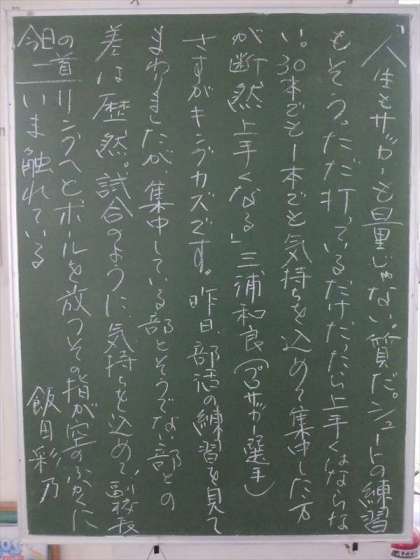 「人生もサッカーも量じゃない。質だ。シュートの練習
もそう。ただ打っているだけだったら上手くはならな
い。30本でも1本でも気持ちを込めて集中した方
が断然上手くなる」三浦和良（プロサッカー選手）
さすがキングカズです。昨日、部活の練習を見て
まわりましたが、集中している部とそうでない部との
差は歴然。試合のように、気持ちを込めて。副校長
今日の一首 リングへとボールを放つその指が空のふかくに
いま触れている 飯田彩乃